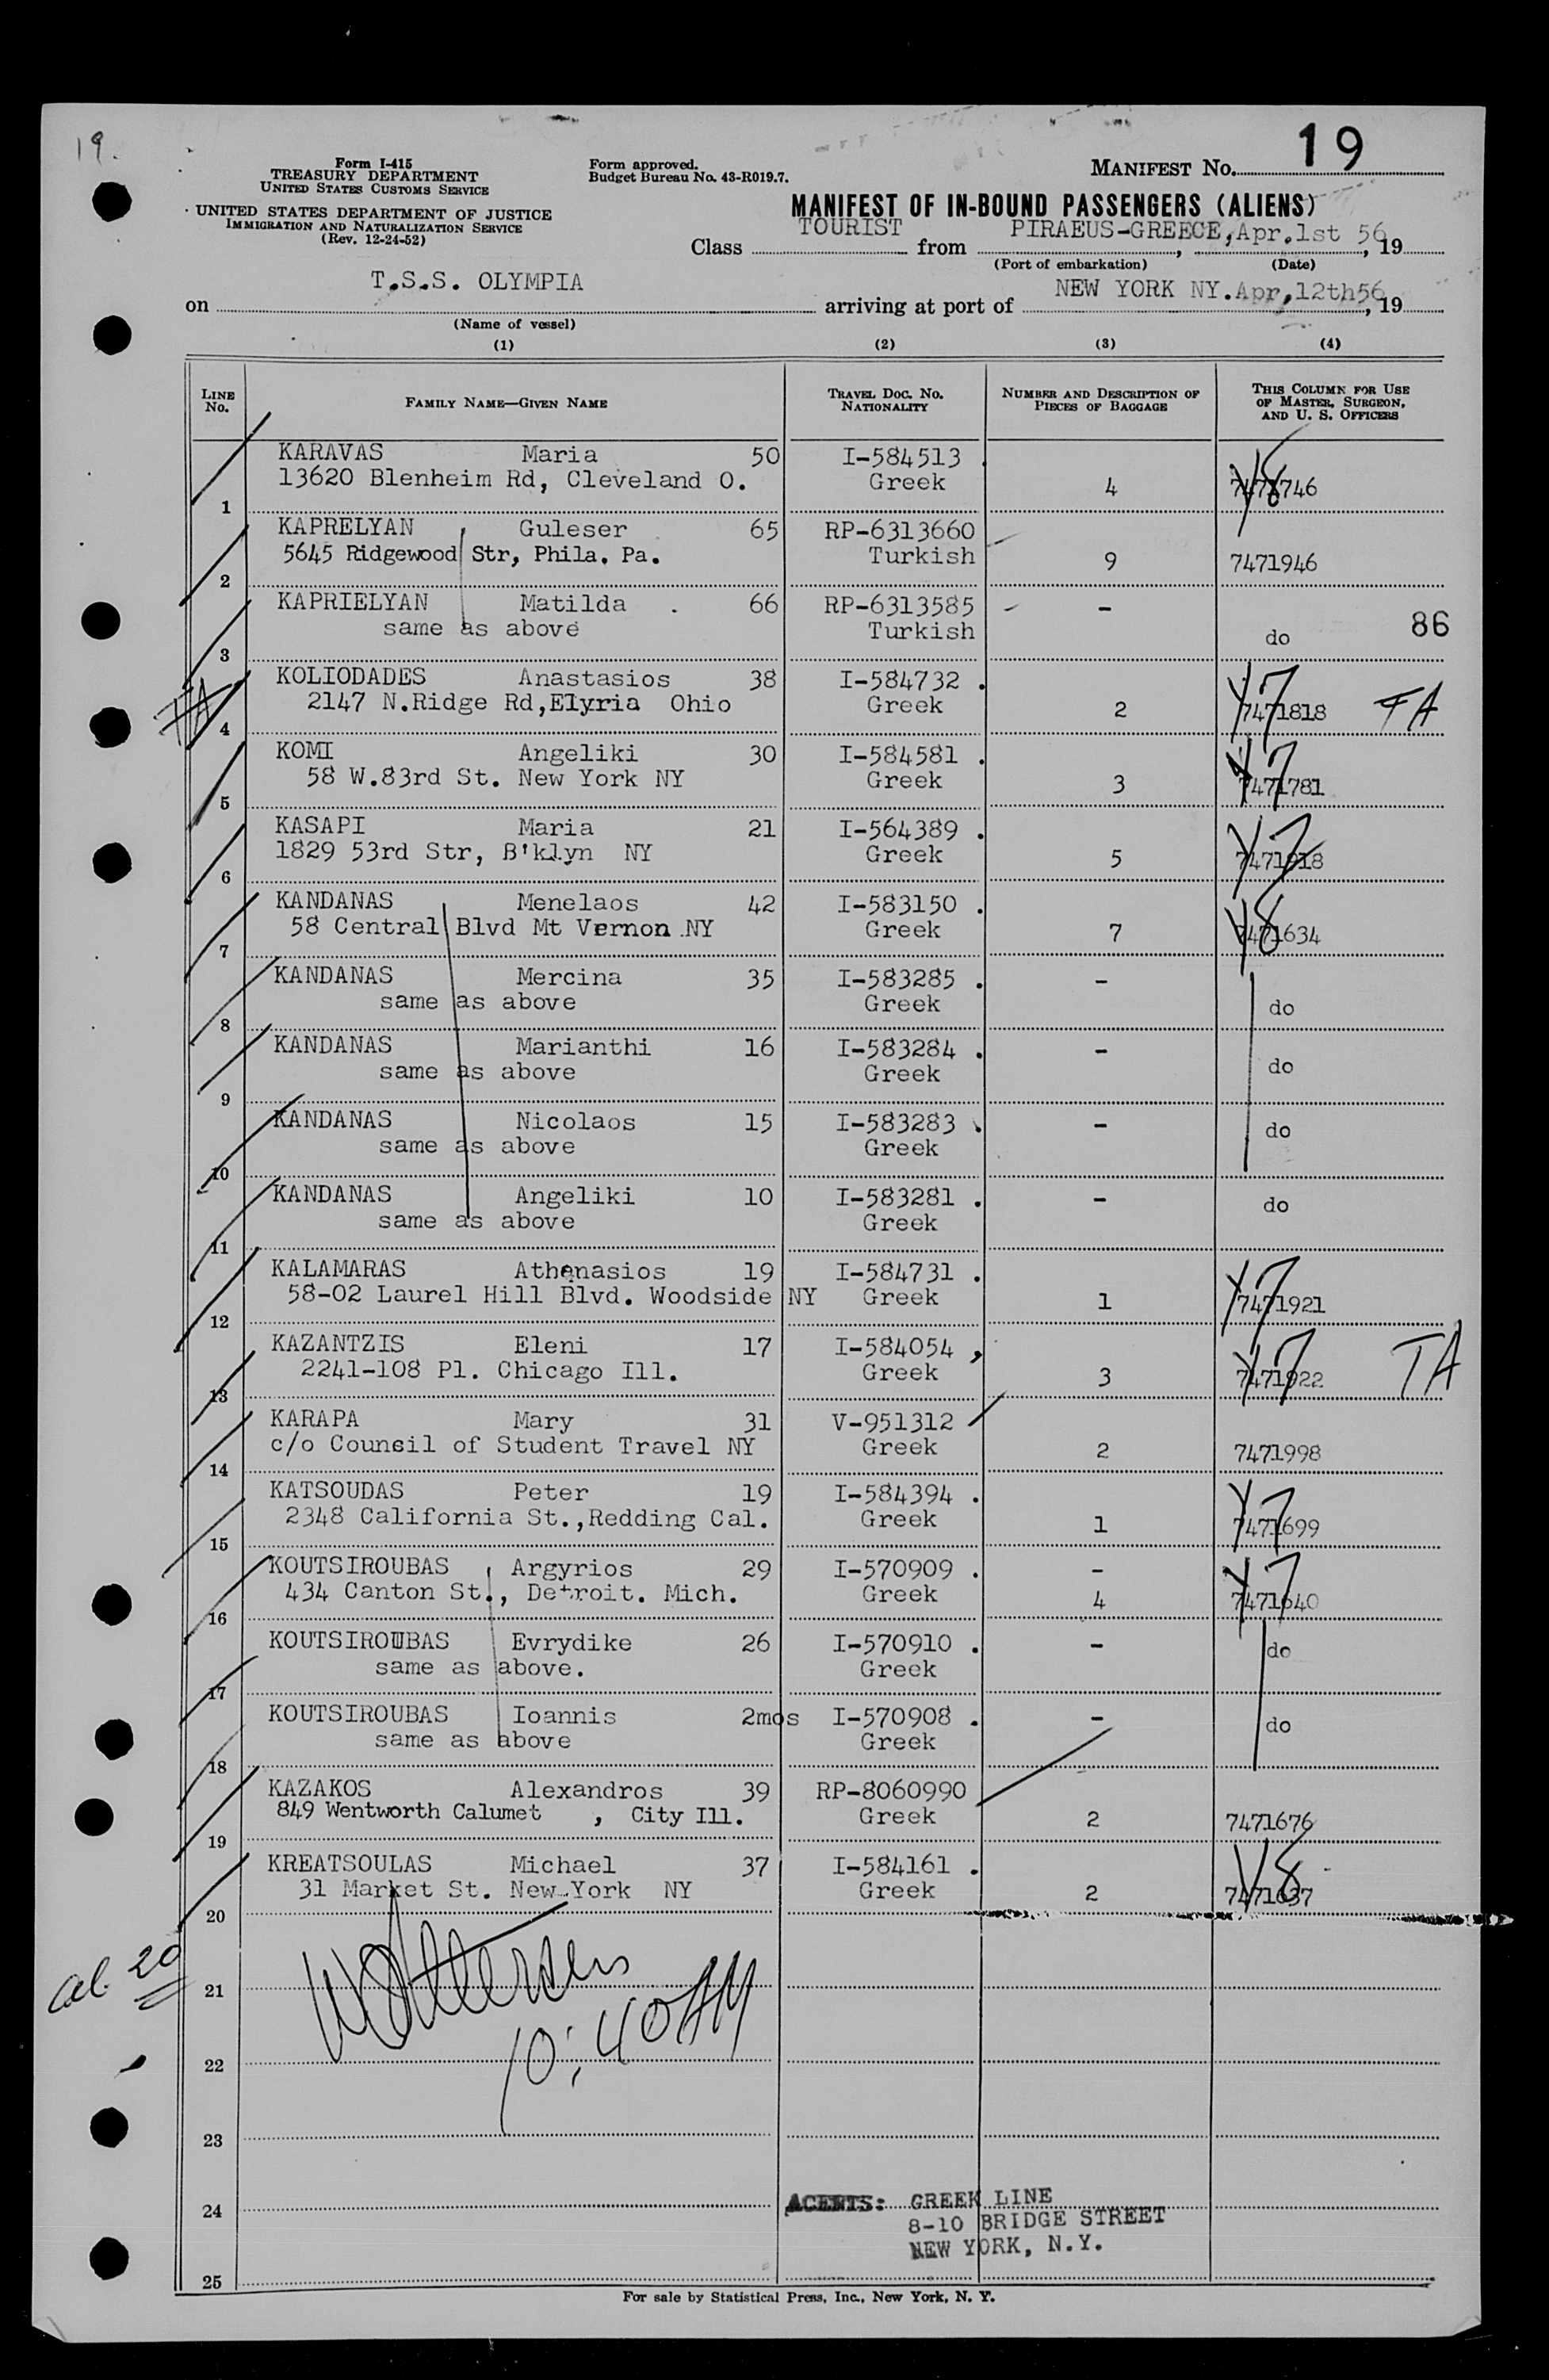 19.
Form I-415
TREASURY DEPARTMENT
UNITED STATES CUSTOMS SERVICE
UNITED STATES DEPARTMENT OF JUSTICE
IMMIGRATION AND NATURALIZATION SERVICE
(Rev. 12-24-52)
Form approved.
Budget Bureau No. 43-R019.7.
MANIFEST NO. 19
MANIFEST OF IN-BOUND PASSENGERS (ALIENS)
Class TOURIST from PIRAEUS-GREECE, Apr. 1st 56, 19
(Port of embarkation) (Date)
on T.S.S. OLYMPIA arriving at port of NEW YORK NY. Apr, 12th56, 19
(Name of vessel)
(1) (2) (3) (4)
LINE NO. FAMILY NAME—GIVEN NAME TRAVEL DOC. NO. NATIONALITY NUMBER AND DESCRIPTION OF PIECES OF BAGGAGE THIS COLUMN FOR USE OF MASTER, SURGEON, AND U. S. OFFICERS
KARAVAS Maria 50 I-584513
1 13620 Blenheim Rd, Cleveland O. Greek 4 Y8
KAPRELYAN Guleser 65 RP-6313660
2 5645 Ridgewood Str, Phila. Pa. Turkish 9 7471946
KAPRIELYAN Matilda 66 RP-6313585 -
3 same as above Turkish do 86
KOLIODADES Anastasios 38 I-584732
TA 4 2147 N.Ridge Rd,Elyria Ohio Greek 2 7471818 Y7 TA
KOMI Angeliki 30 I-584581
5 58 W.83rd St. New York NY Greek 3 7471781 Y7
KASAPI Maria 21 I-564389
6 1829 53rd Str, B'klyn NY Greek 5 7471918 Y7
KANDANAS Menelaos 42 I-583150
7 58 Central Blvd Mt Vernon NY Greek 7 7471634 Y8
KANDANAS Mercina 35 I-583285 -
8 same as above Greek do
KANDANAS Marianthi 16 I-583284 -
9 same as above Greek do
KANDANAS Nicolaos 15 I-583283 -
10 same as above Greek do
KANDANAS Angeliki 10 I-583281 -
11 same as above Greek do
KALAMARAS Athanasios 19 I-584731
12 58-02 Laurel Hill Blvd. Woodside NY Greek 1 7471921 Y7
KAZANTZIS Eleni 17 I-584054
13 2241-108 Pl. Chicago Ill. Greek 3 7471922 Y7 TA
KARAPA Mary 31 V-951312
14 c/o Council of Student Travel NY Greek 2 7471998
KATSOUDAS Peter 19 I-584394
15 2348 California St.,Redding Cal. Greek 1 7471699 Y7
KOUTSIROUBAS Argyrios 29 I-570909 -
16 434 Canton St., Detroit. Mich. Greek 4 7471640 Y7
KOUTSIROUBAS Evrydike 26 I-570910 -
17 same as above. Greek do
KOUTSIROUBAS Ioannis 2mos I-570908 -
18 same as above Greek do
KAZAKOS Alexandros 39 RP-8060990
19 849 Wentworth Calumet , City Ill. Greek 2 7471676
KREATSOULAS Michael 37 I-584161
20 31 Market St. New York NY Greek 2 7471637 V8
20
21
10:40AM
22
23
24
AGENTS: GREEK LINE
8-10 BRIDGE STREET
NEW YORK, N.Y.
25
For sale by Statistical Press, Inc., New York, N. Y.